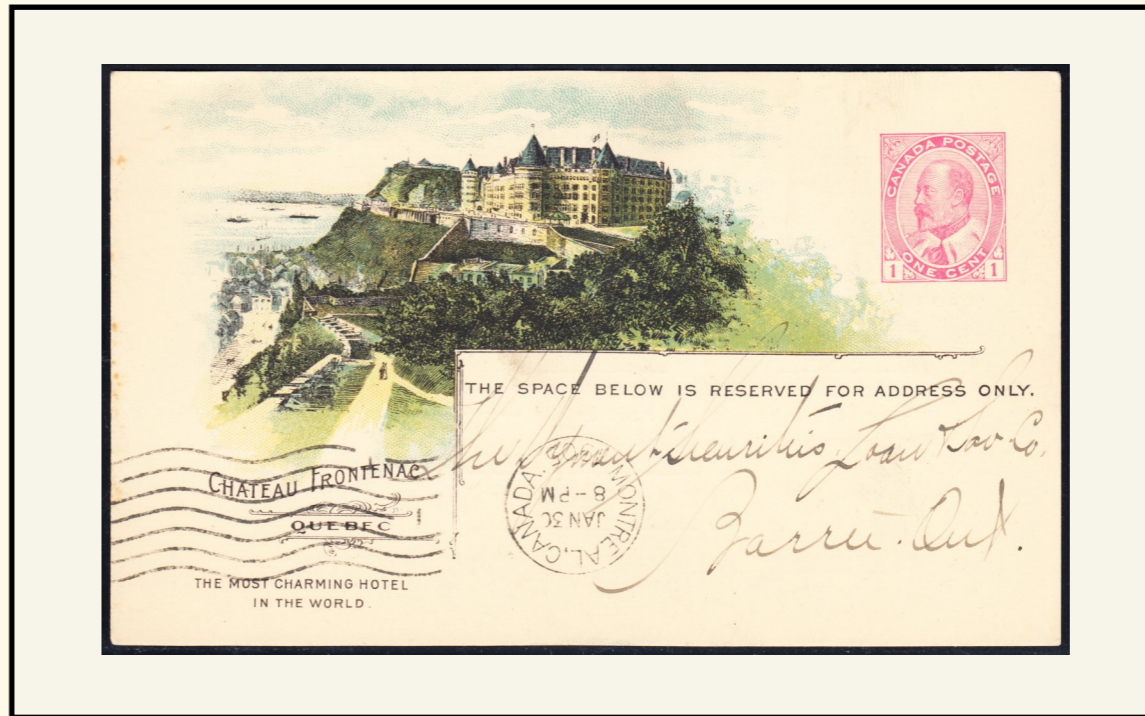 CANADA POSTAGE
1 ONE CENT 1
THE SPACE BELOW IS RESERVED FOR ADDRESS ONLY.
The Securities, Loan & Sav. Co.
Barrie. Ont.
MONTREAL, CANADA.
8-PM
JAN 30
CHATEAU FRONTENAC
QUEBEC
THE MOST CHARMING HOTEL
IN THE WORLD.